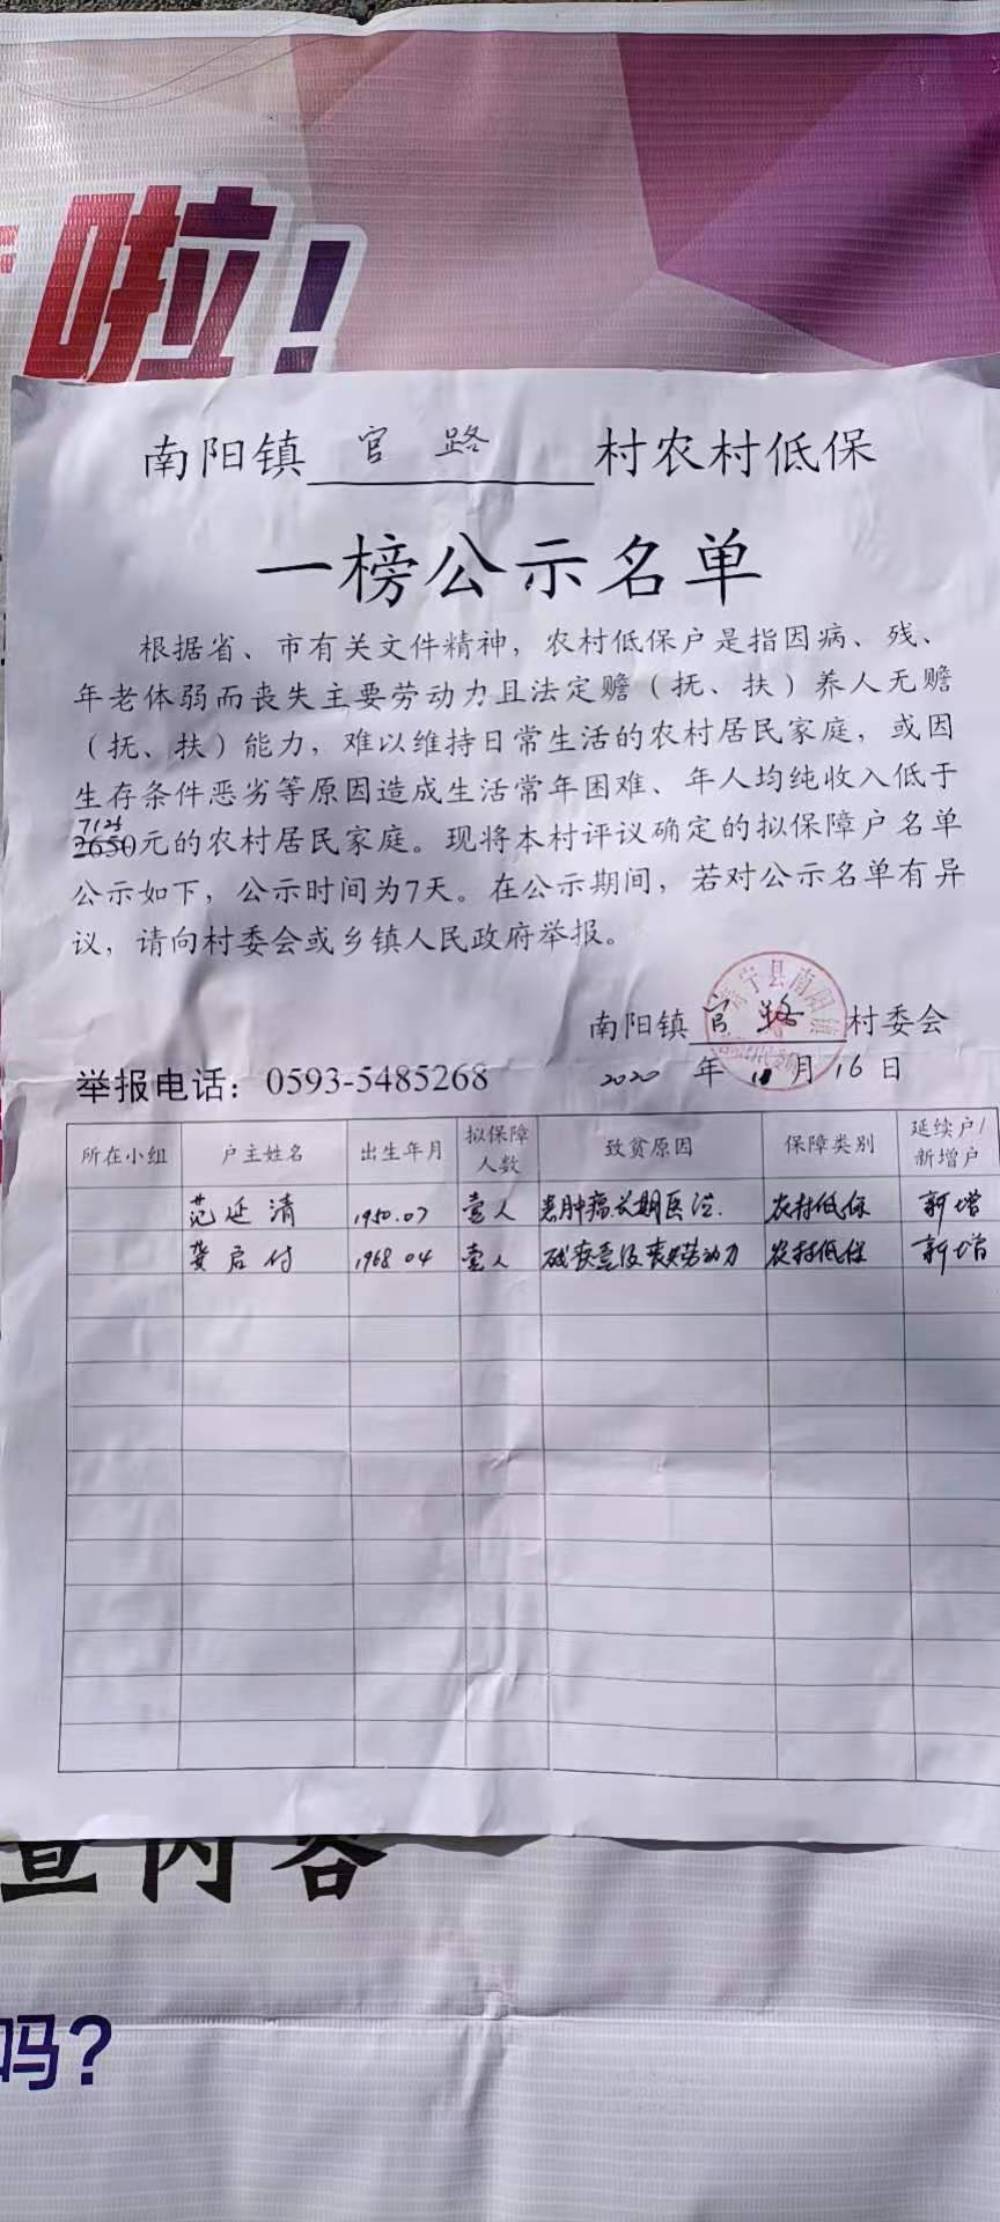 啦!
南阳镇 官路 村农村低保
一榜公示名单
根据省、市有关文件精神，农村低保户是指因病、残、
年老体弱而丧失主要劳动力且法定赡（抚、扶）养人无赡
（抚、扶）能力，难以维持日常生活的农村居民家庭，或因
生存条件恶劣等原因造成生活常年困难、年人均纯收入低于
2650元的农村居民家庭。现将本村评议确定的拟保障户名单
公示如下，公示时间为7天。在公示期间，若对公示名单有异
议，请向村委会或乡镇人民政府举报。
南阳镇 官路 村委会
举报电话：0593-5485268
2020 年 月 16 日
所在小组 户主姓名 出生年月 拟保障人数 致贫原因 保障类别 延续户/新增户
范延清 1950.07 壹人 患肿瘤长期医治. 农村低保 新增
龚启付 1968 04 壹人 残疾壹级丧失劳动力 农村低保 新增
查内容
吗?